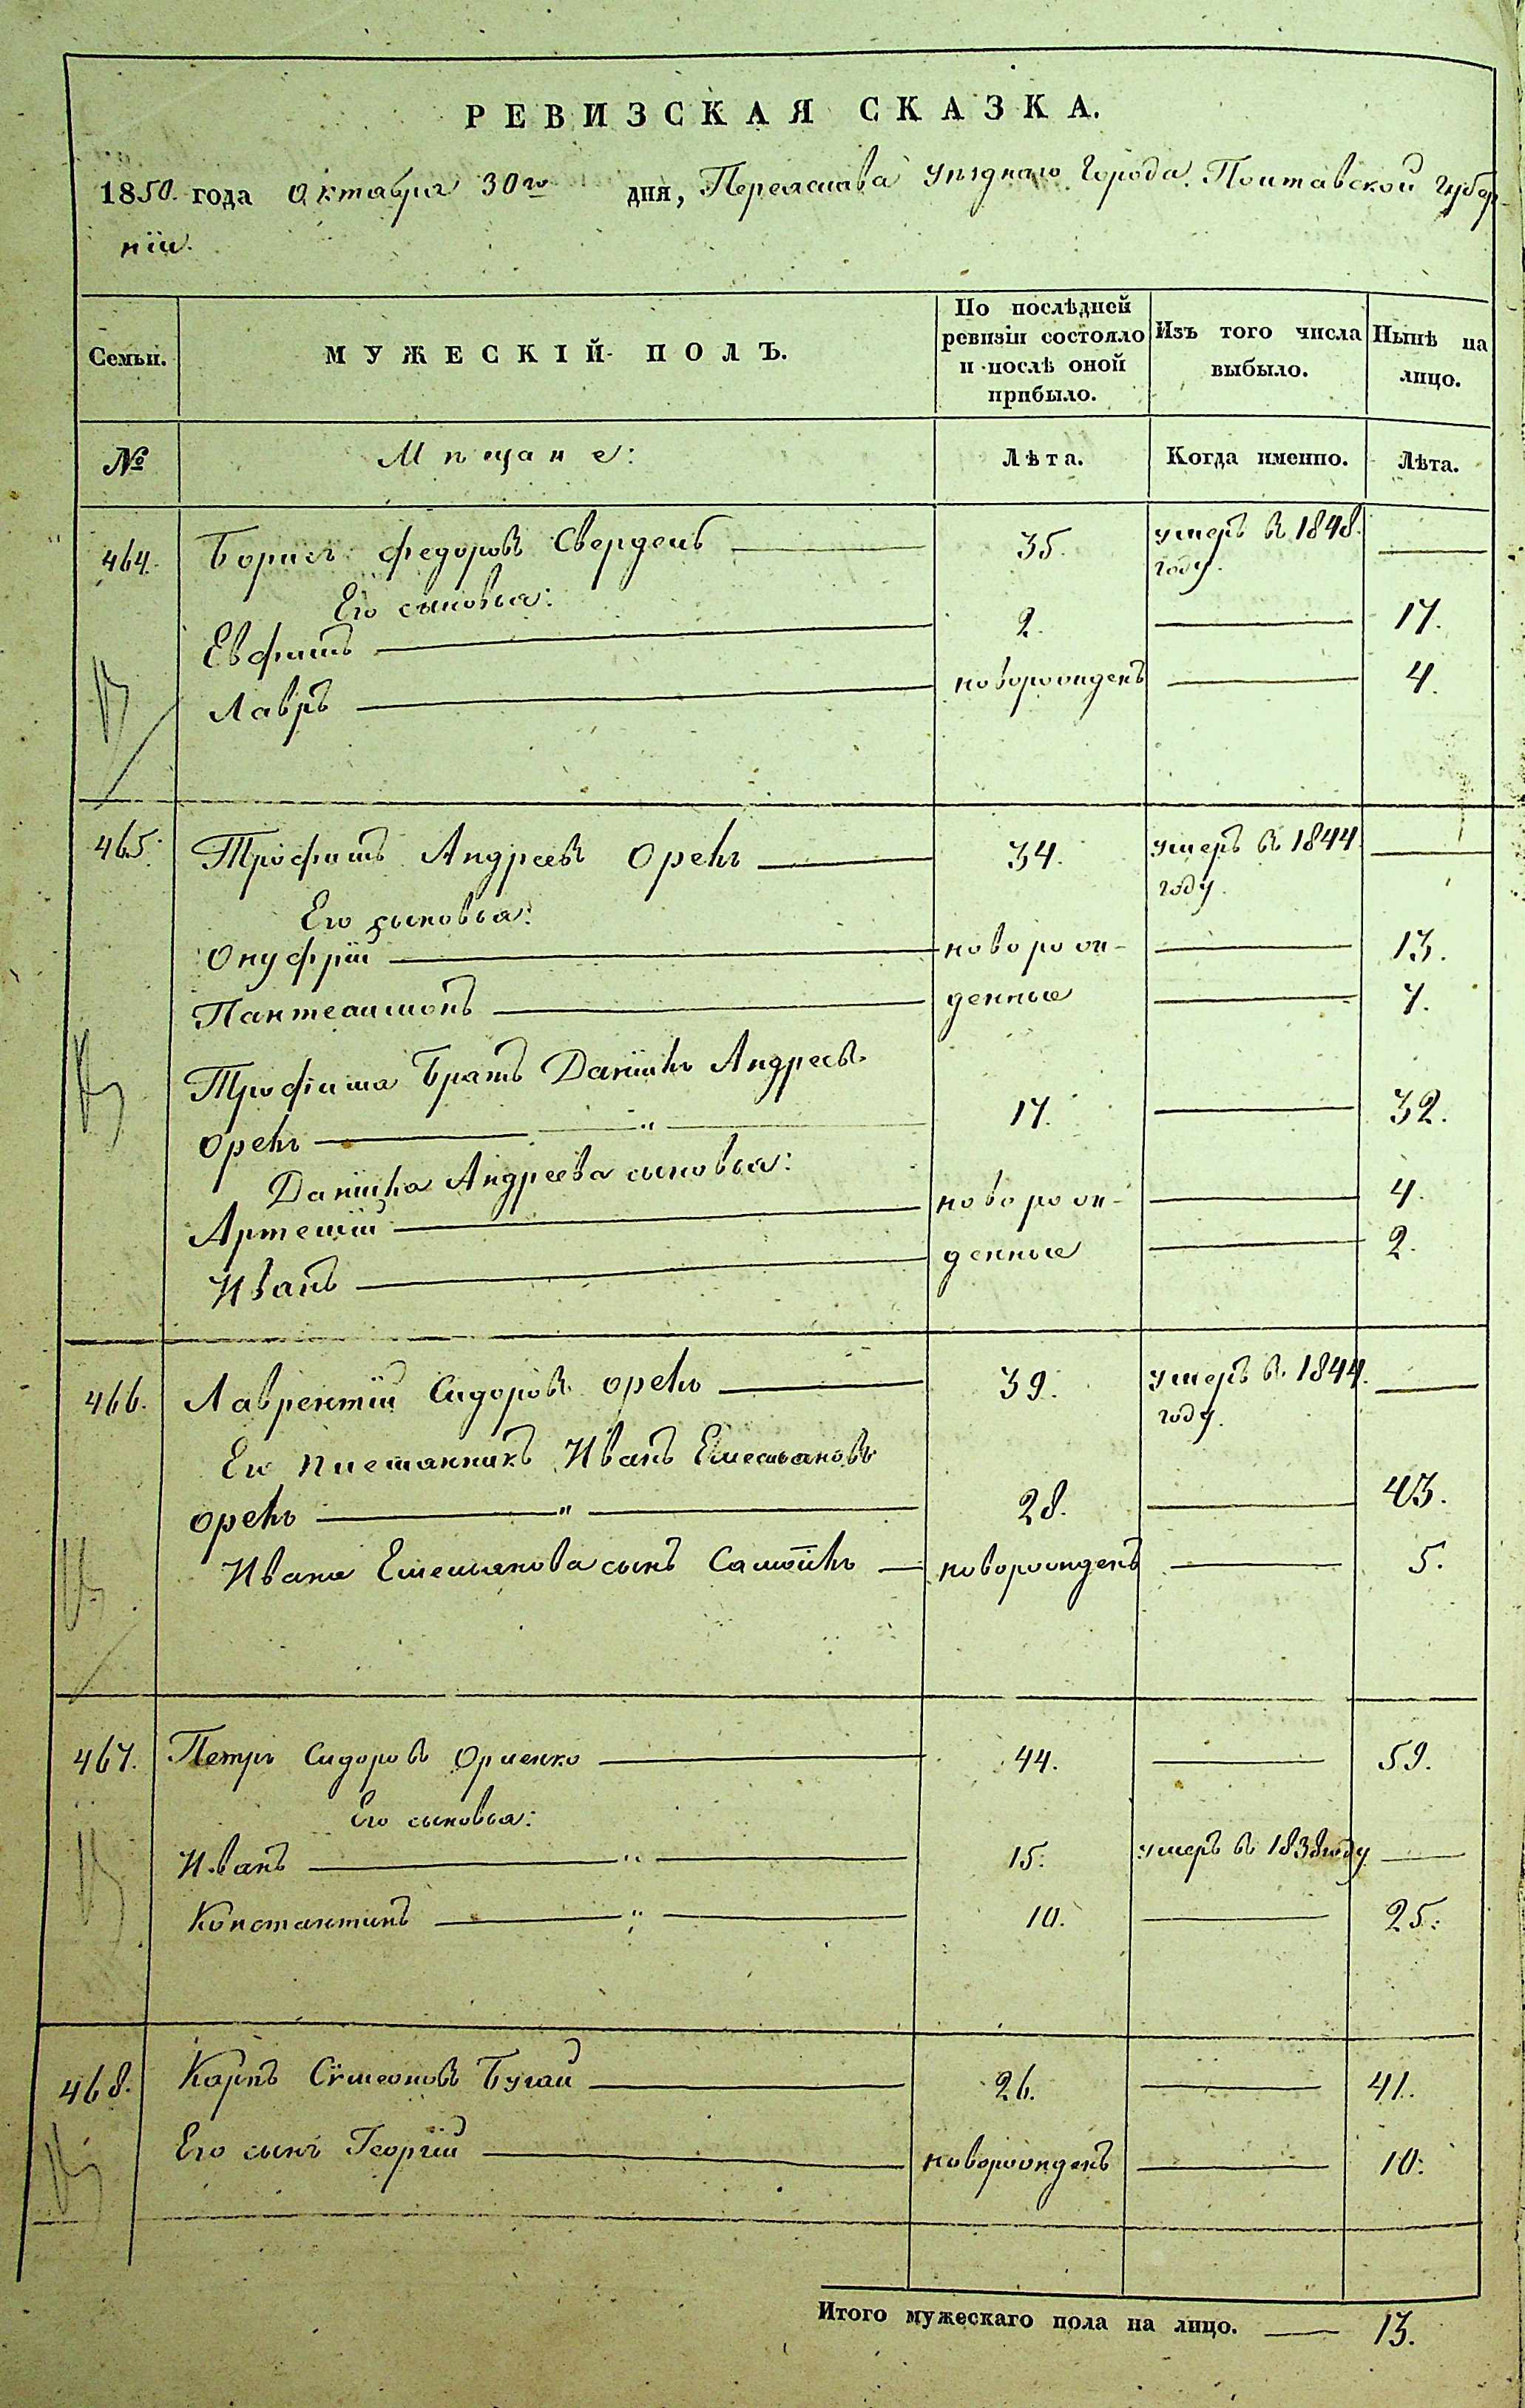 РЕВИЗСКАЯ СКАЗКА.
1850. года Октября 30го дня, Переяслава уѣзднаго Города. Полтавской Губер-
нiи.
Семьи. МУЖЕСКІЙ ПОЛЪ. По послѣдней ревизіи состояло и послѣ оной прибыло. Изъ того числа выбыло. Нынѣ на лицо.
№ Мѣщане: Лѣта. Когда именно. Лѣта.
464. Борисъ Федоровъ 35. умеръ въ 1848.
году.
Его сыновья:
Евфимъ 2. 17.
Лавръ новорожденъ 4.
465. Трофимъ Андреевъ Орелъ 34. умеръ въ 1844.
году.
Его сыновья:
Онуфрій новорож- 13.
Пантелимонъ денные 7.
Трофима братъ Данiилъ Андреевъ
Орелъ " 17. 32.
Данiила Андреева сыновья:
Артемiй новорож- 4.
Иванъ денные 2.
466. Лаврентiй Сидоровъ Орелъ 39. умеръ въ 1844.
году.
Его племянникъ Иванъ Емельяновъ
Орелъ " 28. 43.
Ивана Емельянова сынъ Самойлъ новорожденъ 5.
467. Петръ Сидоровъ Орленко 44. 59.
Его сыновья:
Иванъ " 15. умеръ въ 1838 году
Константинъ " 10. 25.
468. Карпъ Сѵмеоновъ Бугай 26. 41.
Его сынъ Георгiй новорожденъ 10.
Итого мужескаго пола на лицо. 13.